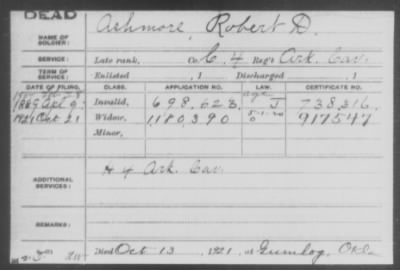 DEAD
NAME OF SOLDIER: Ashmore, Robert D.
SERVICE: Late rank, Co. C, 4 Reg't Ark. Cav.
TERM OF SERVICE: Enlisted , 1 Discharged , 1
DATE OF FILING. CLASS. APPLICATION NO. LAW. CERTIFICATE NO.
1889 Apl 9 Invalid, 698.623 age J 738.316
1921 Oct 21 Widow, 1180390 5-1-20 917547
Minor,
ADDITIONAL SERVICES: H 4 Ark. Cav.
REMARKS:
Died Oct 13, 1921, at Gumlog, Okla